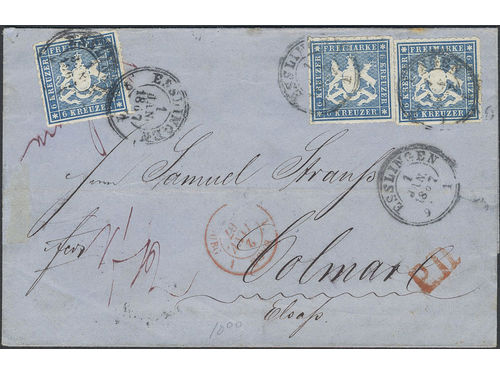 FREIMARKE
6 KREUZER
FREIMARKE
6 KREUZER
FREIMARKE
6 KREUZER
ESSLINGEN
1
JAN
1867
ESSLINGEN
ESSLINGEN
1
JAN
1867
Herrn Samuel Strauss
Colmar
Elsass
P.D.
1000